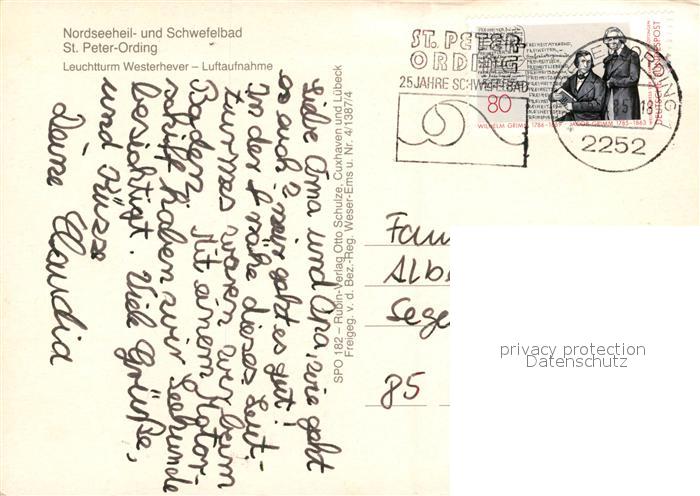 Nordseeheil- und Schwefelbad
St. Peter-Ording
Leuchtturm Westerhever – Luftaufnahme
Liebe Oma und Opa, wie geht
es euch? mir geht es gut!
In der Nähe dieses Leut-
turmes waren wir beim
Baden. Mit einem Motor-
schiff haben wir Seehunde
besichtigt. Viele Grüße,
und Küsse
Deine Claudia
SPO 182 – Rubin-Verlag Otto Schulze, Cuxhaven und Lübeck
Freigeg. v. d. Bez.-Reg. Weser-Ems u. Nr. 4/1387/4
ST. PETER-
ORDING
25 JAHRE SCHWEFELBAD
80
WILHELM GRIMM 1786-1859 JACOB GRIMM 1785-1863
DEUTSCHE BUNDESPOST
2252
Fam
Alb
Sege
85
privacy protection
Datenschutz